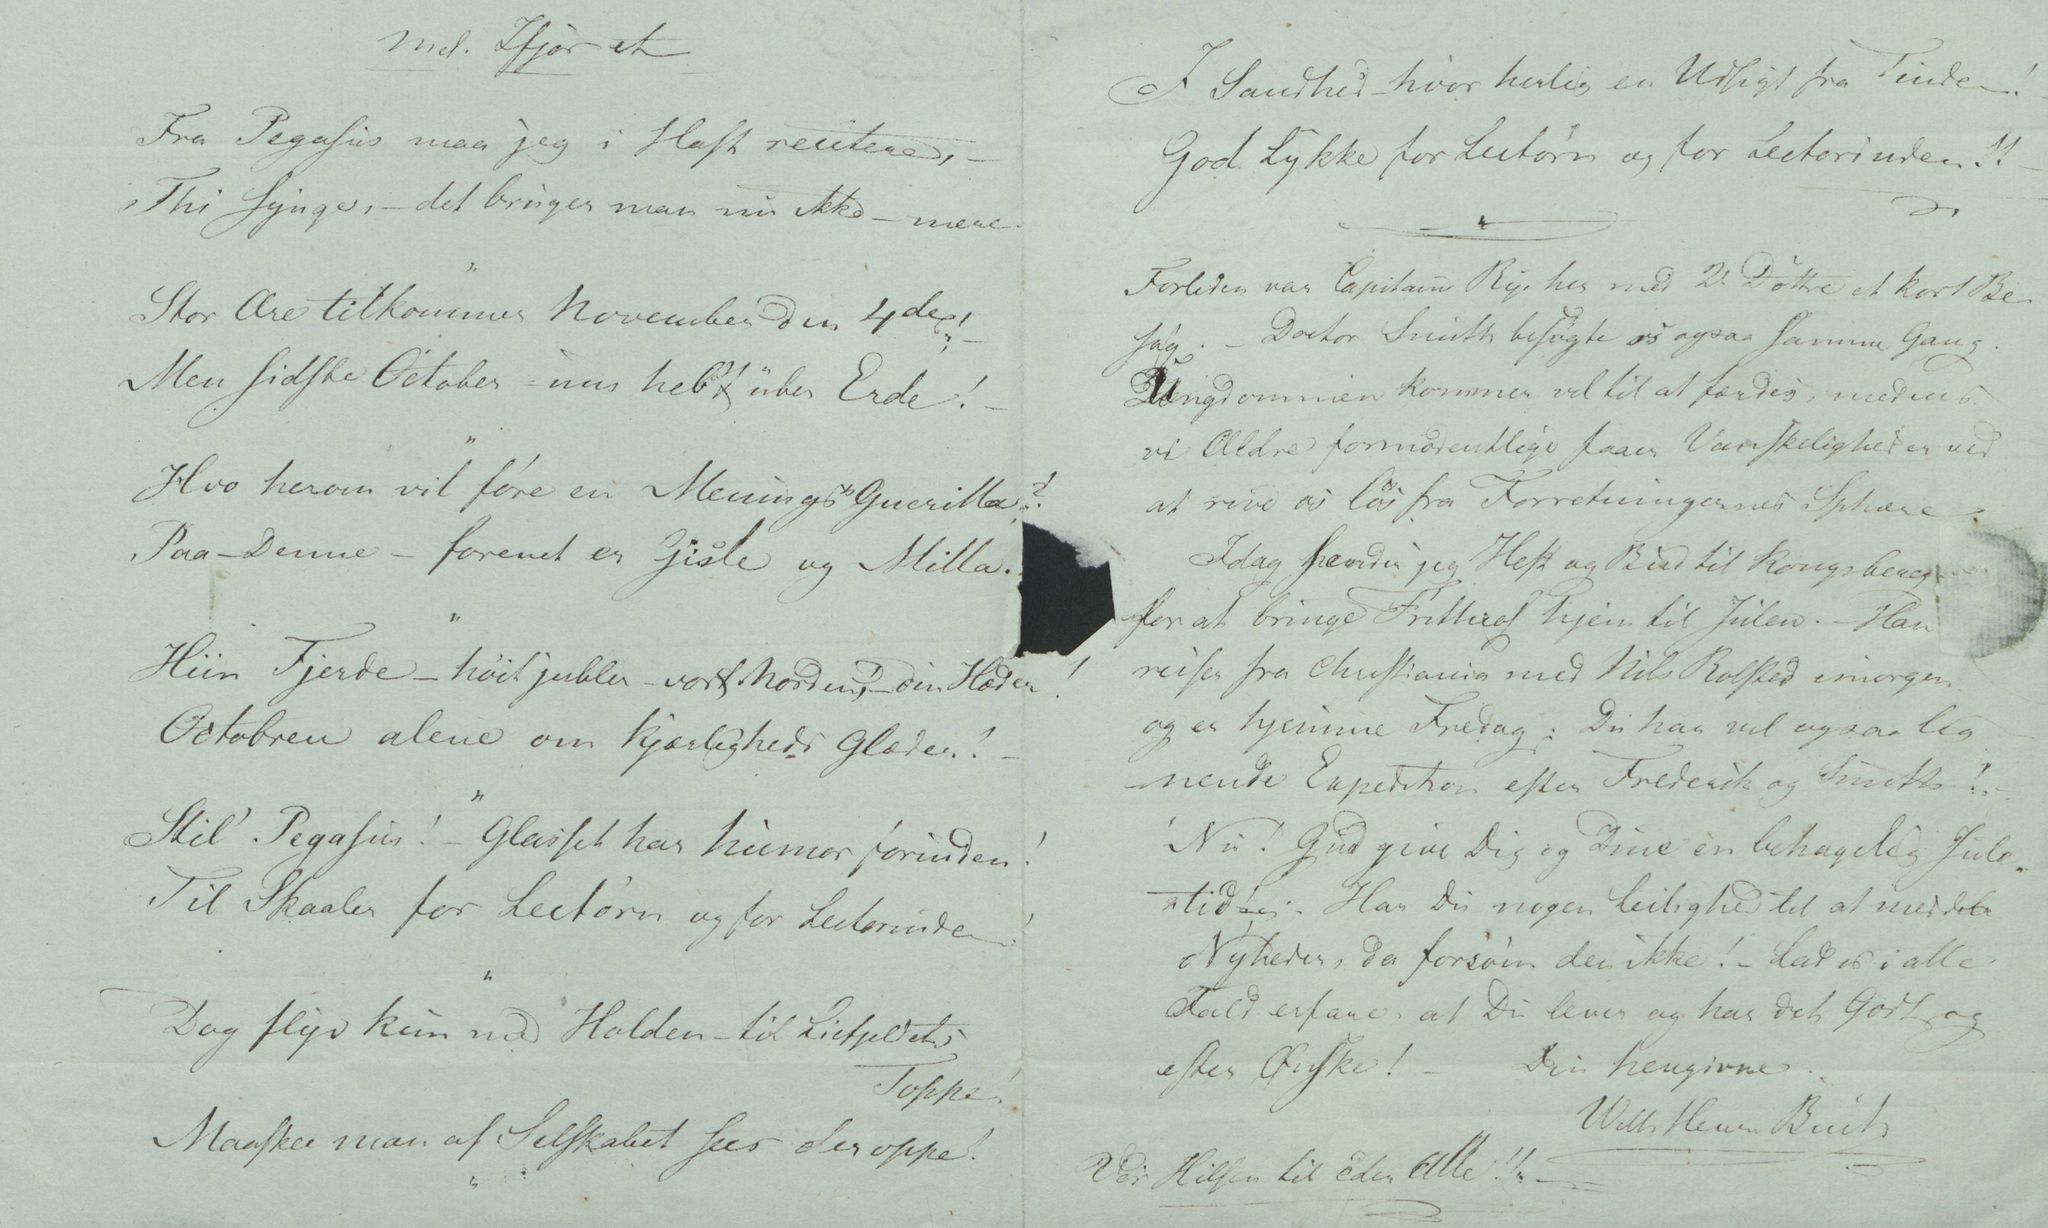 Mel. Ifjor et
Fra Pegasus maa jeg i Hast recitere, –
Thi synge, – det bruger man nu ikke – mere.
"
Stor Ære tilkommer November den 4de! –
Men sidste October – uns hebt über Erde! –
"
Hvo herom vil føre en Menings Guerilla?
Paa – Denne – forenet er Gisle og Milla.
"
Hiin Fjerde – høit jubler – vort Norden, – din Hæder!
Octobren alene om Kjærligheds Glæder! –
"
Stil' Pegasus! – Glasset har Humor forinden!
Til Skaaler for Lectorn og for Lectorinden!
"
Dog flyv kun med Halden – til Liefjeldets
Toppe!
Maaskee man af Selskabet sees deroppe!
"
I Sandhed – hvor herlig en Udsigt fra Tinden! –
God Lykke for Lectorn og for Lectorinden!! –
Forleden var Capitain Rye her med 2 Døttre et kort Be
søg. – Doctor Smith besøgte os ogsaa samme Gang.
Ungdommen kommer vel til at færdes, medens
vi Ældre formodentlige faaer Vanskeligheder ved
at rive os løs fra Forretningernes Sphære.
Idag sender jeg Hest og Bud til Kongsberg
for at bringe hjem til Julen. – Han
reiser fra Christiania med Nils Rolsted imorgen
og er hjemme Fredag; Du har vel ogsaa lig
nende Expedition efter Frederik og Smith! –
Nu! Gud give Dig og Dine en behagelig Jule
tid! Har Du nogen Leilighed til at meddele
Nyheder, da forsøm den ikke! – Lad os i alle
Fald erfare, at Du lever og har det Godt og
efter Ønske! – Din hengivne
Buch
Vor Hilsen til Eder Alle!!